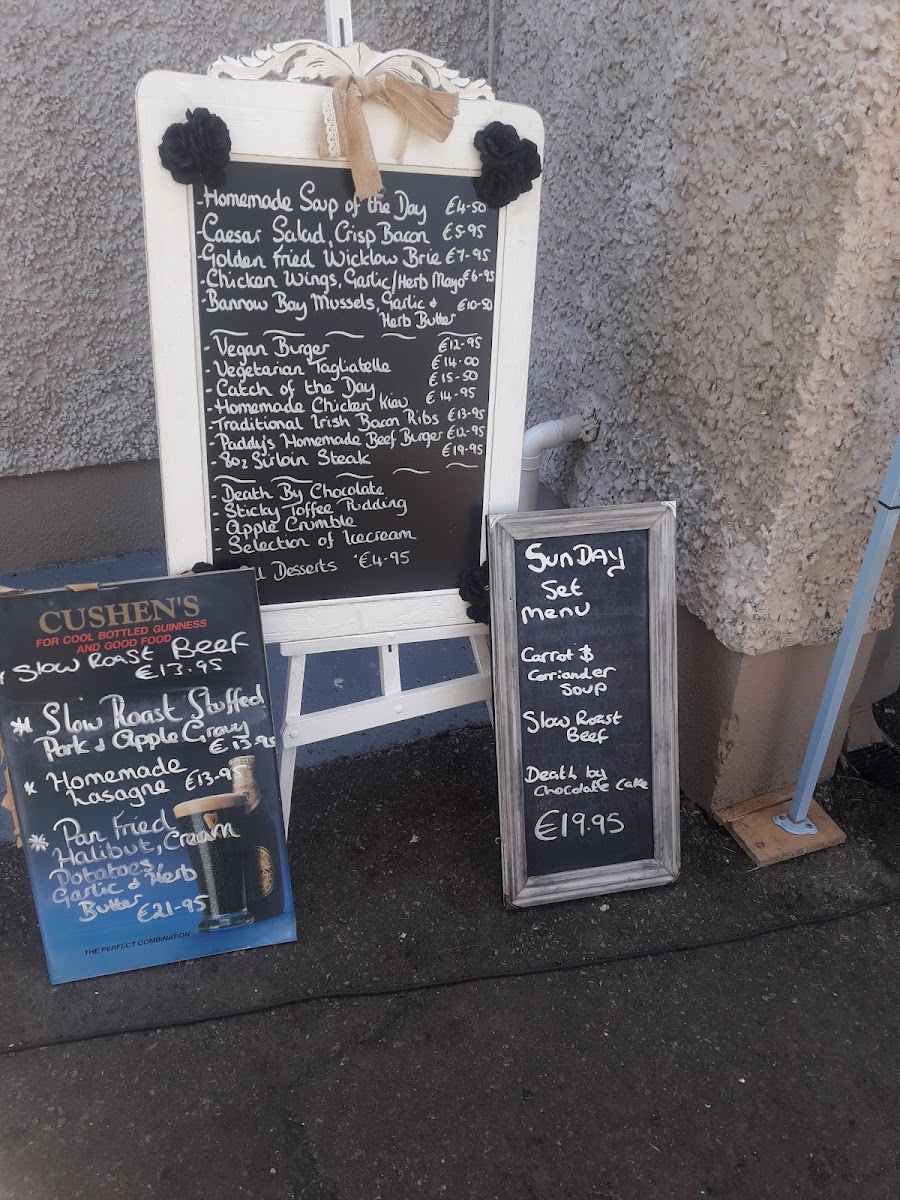 -Homemade Soup of the Day €4-50
-Caesar Salad, Crisp Bacon €5-95
-Golden Fried Wicklow Brie €7-95
-Chicken Wings, Garlic/Herb Mayo €6-95
-Bannow Bay Mussels, Garlic & €10-50
Herb Butter
- Vegan Burger €12-95
- Vegetarian Tagliatelle €14-00
- Catch of the Day €15-50
- Homemade Chicken Kiev €14-95
-Traditional Irish Bacon Ribs €13-95
- Paddy's Homemade Beef Burger €12-95
- 8oz Sirloin Steak €19-95
- Death By Chocolate
- Sticky Toffee Pudding
- Apple Crumble
- Selection of Icecream
Desserts €4-95
CUSHEN'S
FOR COOL BOTTLED GUINNESS
AND GOOD FOOD
Slow Roast Beef
€13.95
* Slow Roast Stuffed
Pork & Apple Gravy
€13-95
* Homemade
Lasagne €13-95
* Pan Fried
Halibut, Cream
Potatoes
Garlic & Herb
Butter €21-95
THE PERFECT COMBINATION
SunDAy
Set
Menu
Carrot &
Corriander
Soup
Slow Roast
Beef
Death by
Chocolate Cake
€19.95